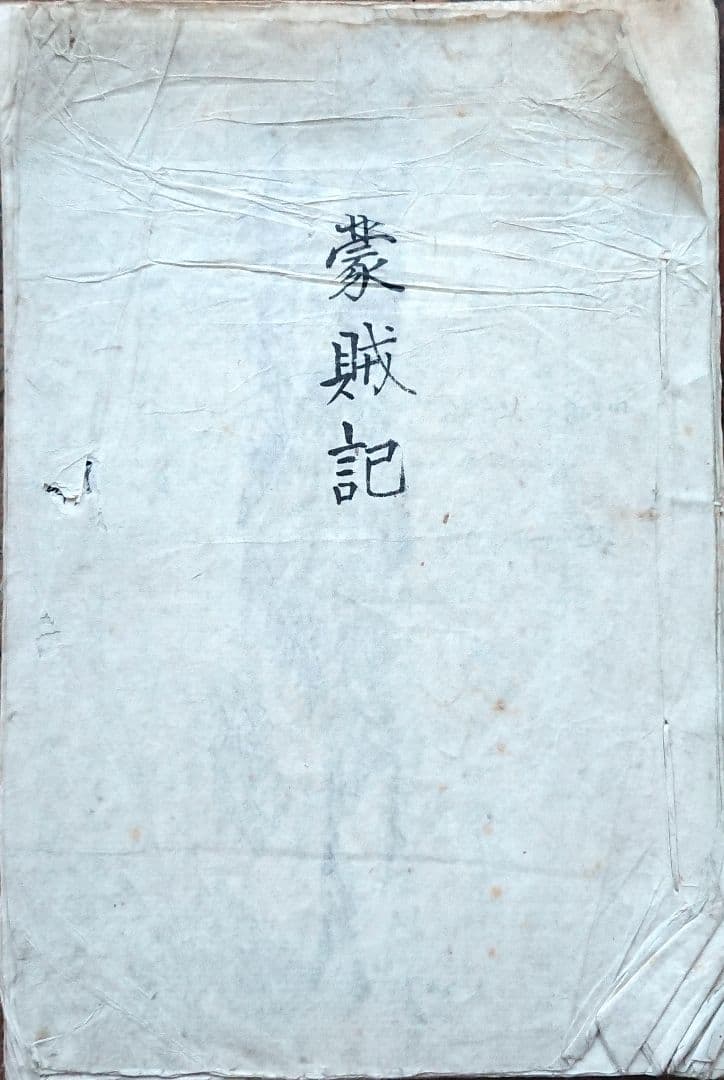 蒙賊記